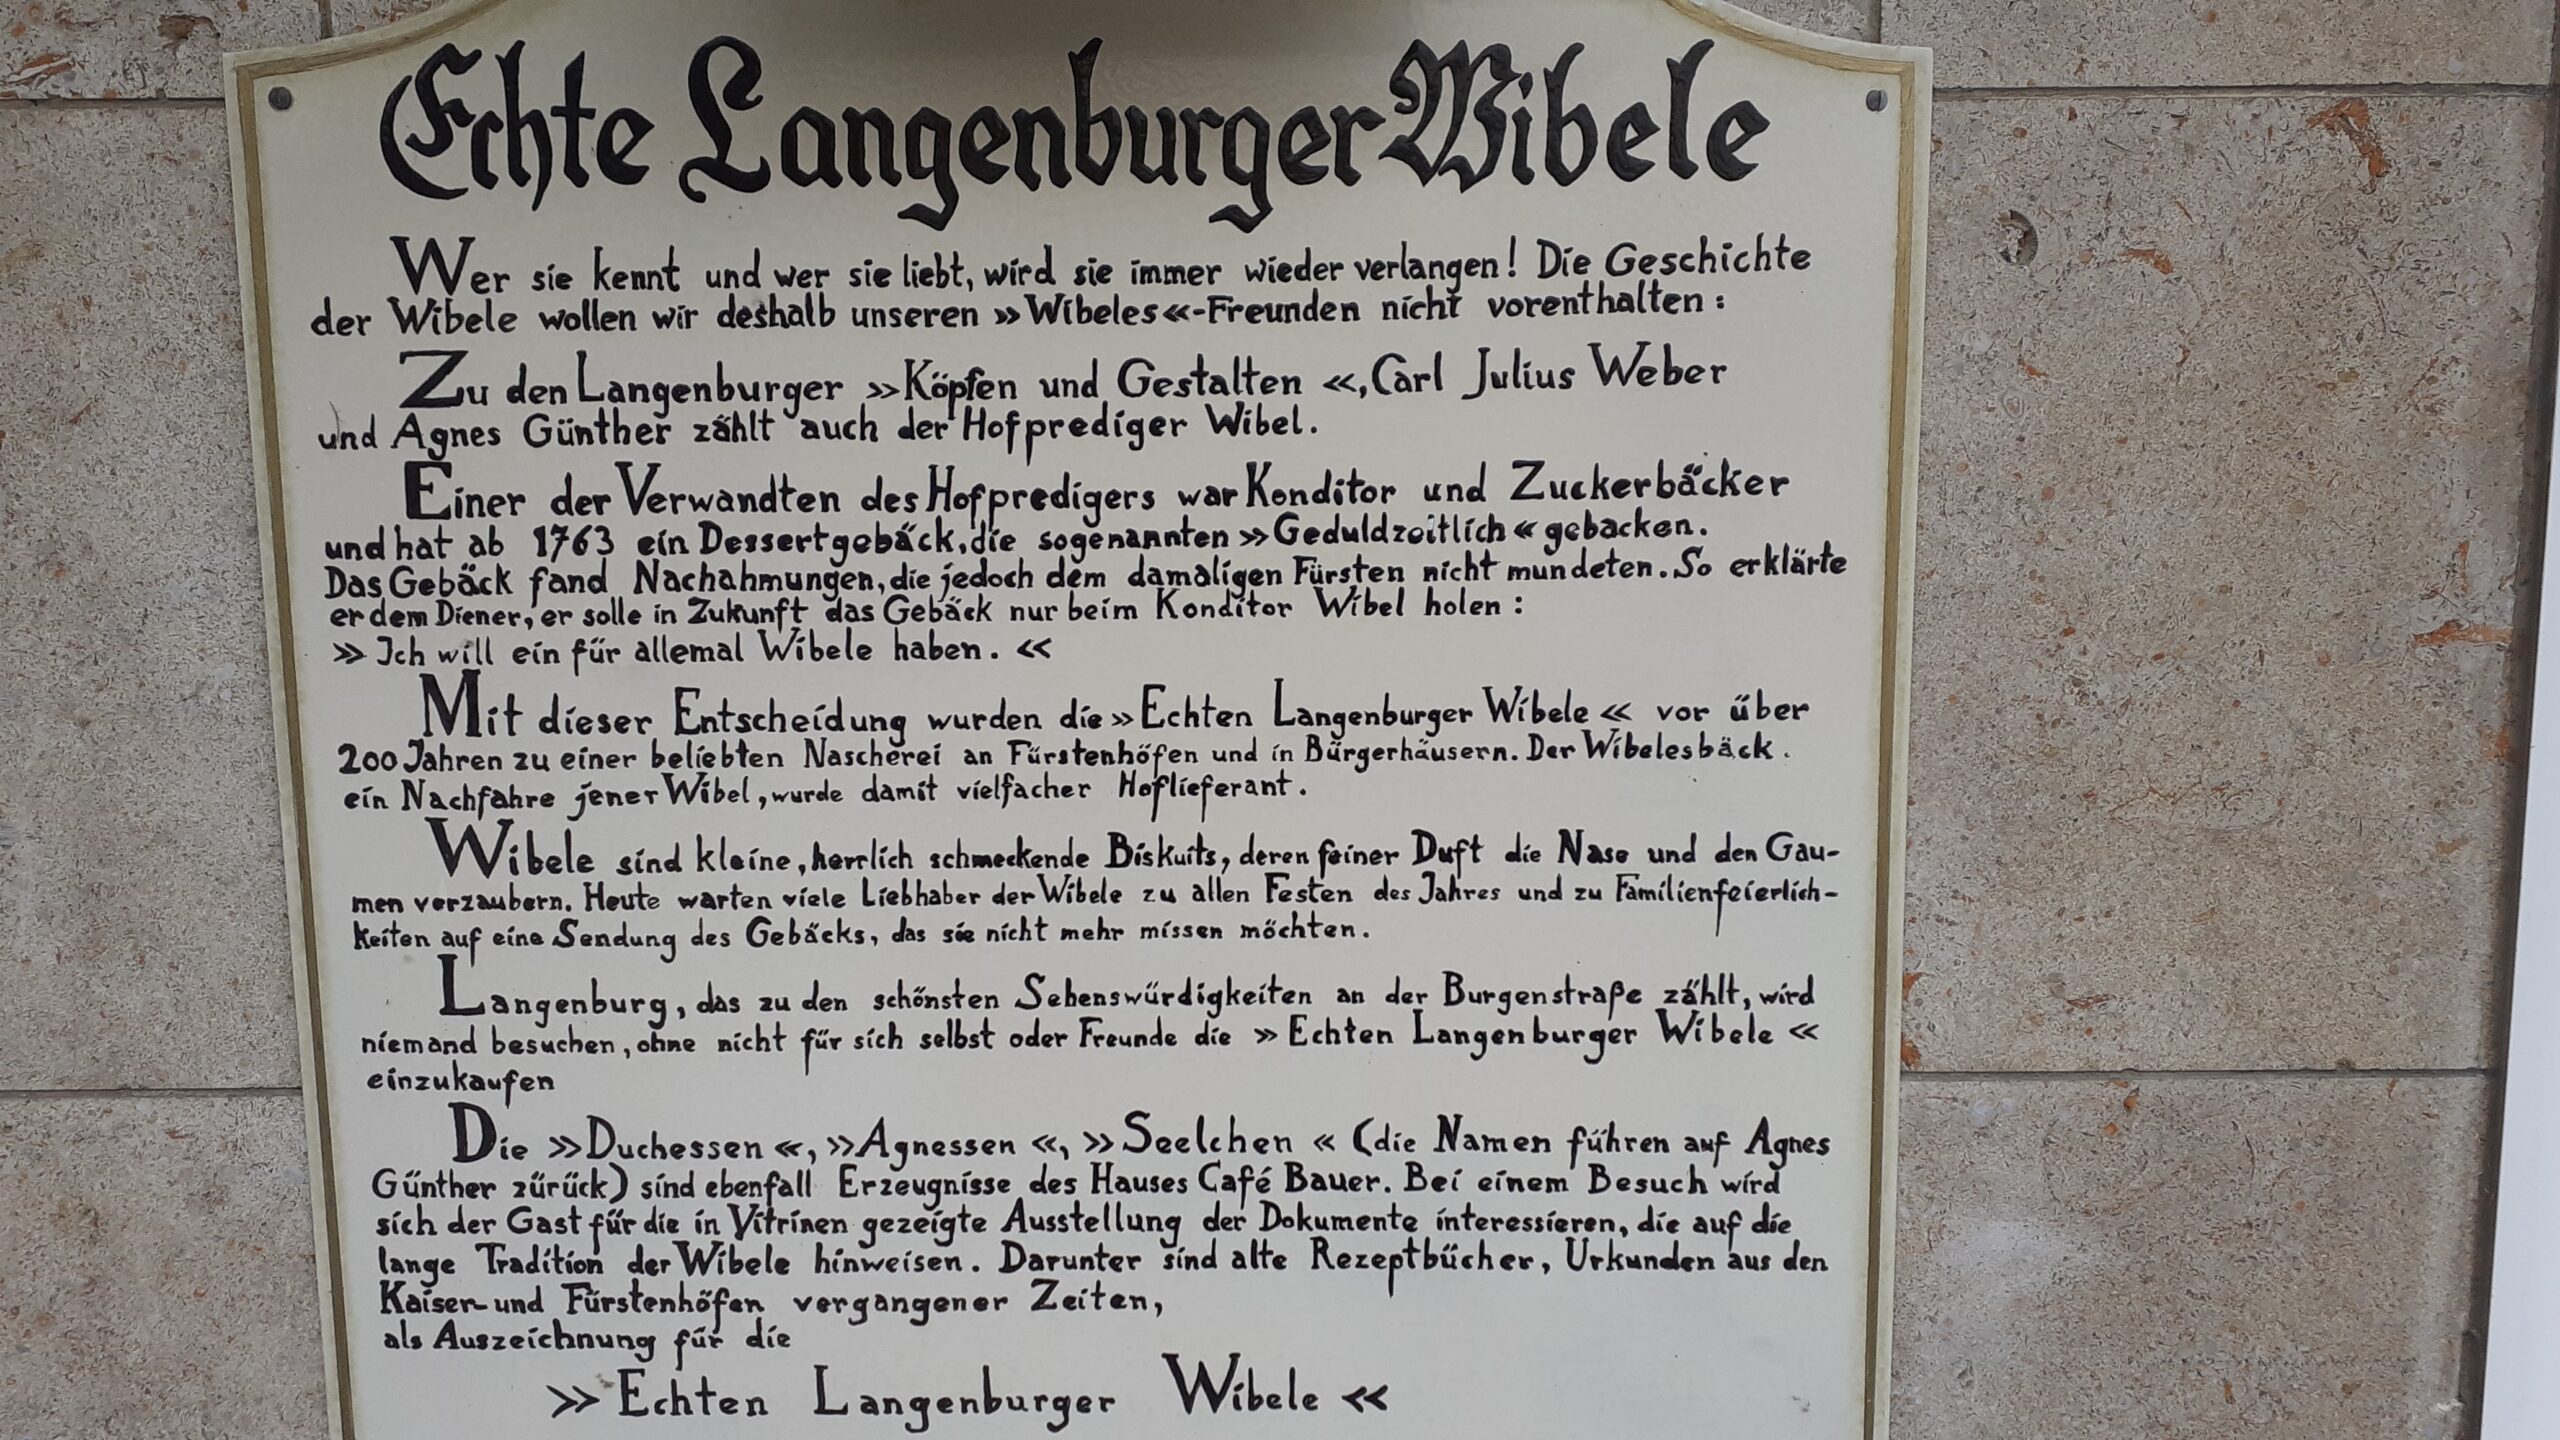 Echte Langenburger Wibele
Wer sie kennt und wer sie liebt, wird sie immer wieder verlangen! Die Geschichte
der Wibele wollen wir deshalb unseren »Wibeles«-Freunden nicht vorenthalten:
Zu den Langenburger »Köpfen und Gestalten«, Carl Julius Weber
und Agnes Günther zählt auch der Hofprediger Wibel.
Einer der Verwandten des Hofpredigers war Konditor und Zuckerbäcker
und hat ab 1763 ein Dessertgebäck, die sogenannten »Geduldzeitlich« gebacken.
Das Gebäck fand Nachahmungen, die jedoch dem damaligen Fürsten nicht mundeten. So erklärte
er dem Diener, er solle in Zukunft das Gebäck nur beim Konditor Wibel holen:
»Ich will ein für allemal Wibele haben.«
Mit dieser Entscheidung wurden die »Echten Langenburger Wibele« vor über
200 Jahren zu einer beliebten Nascherei an Fürstenhöfen und in Bürgerhäusern. Der Wibelesbäck.
ein Nachfahre jener Wibel, wurde damit vielfacher Hoflieferant.
Wibele sind kleine, herrlich schmeckende Biskuits, deren feiner Duft die Nase und den Gau-
men verzaubern. Heute warten viele Liebhaber der Wibele zu allen Festen des Jahres und zu Familienfeierlich-
keiten auf eine Sendung des Gebäcks, das sie nicht mehr missen möchten.
Langenburg, das zu den schönsten Sehenswürdigkeiten an der Burgenstraße zählt, wird
niemand besuchen, ohne nicht für sich selbst oder Freunde die »Echten Langenburger Wibele«
einzukaufen
Die »Duchessen«, »Agnessen«, »Seelchen« (die Namen führen auf Agnes
Günther zürück) sind ebenfall Erzeugnisse des Hauses Café Bauer. Bei einem Besuch wird
sich der Gast für die in Vitrinen gezeigte Ausstellung der Dokumente interessieren, die auf die
lange Tradition der Wibele hinweisen. Darunter sind alte Rezeptbücher, Urkunden aus den
Kaiser- und Fürstenhöfen vergangener Zeiten,
als Auszeichnung für die
»Echten Langenburger Wibele«